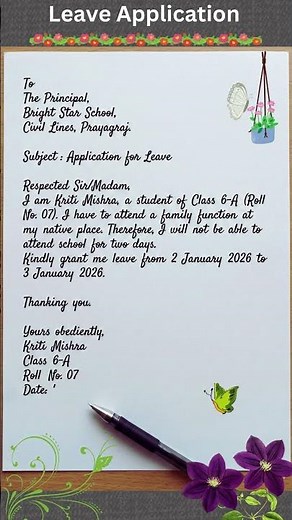 Leave Application
To
The Principal,
Bright Star School,
Civil Lines, Prayagraj.
Subject : Application for Leave
Respected Sir/Madam,
I am Kriti Mishra, a student of Class 6-A (Roll
No. 07). I have to attend a family function at
my native place. Therefore, I will not be able to
attend school for two days.
Kindly grant me leave from 2 January 2026 to
3 January 2026.
Thanking you.
Yours obediently,
Kriti Mishra
Class 6-A
Roll No. 07
Date: '